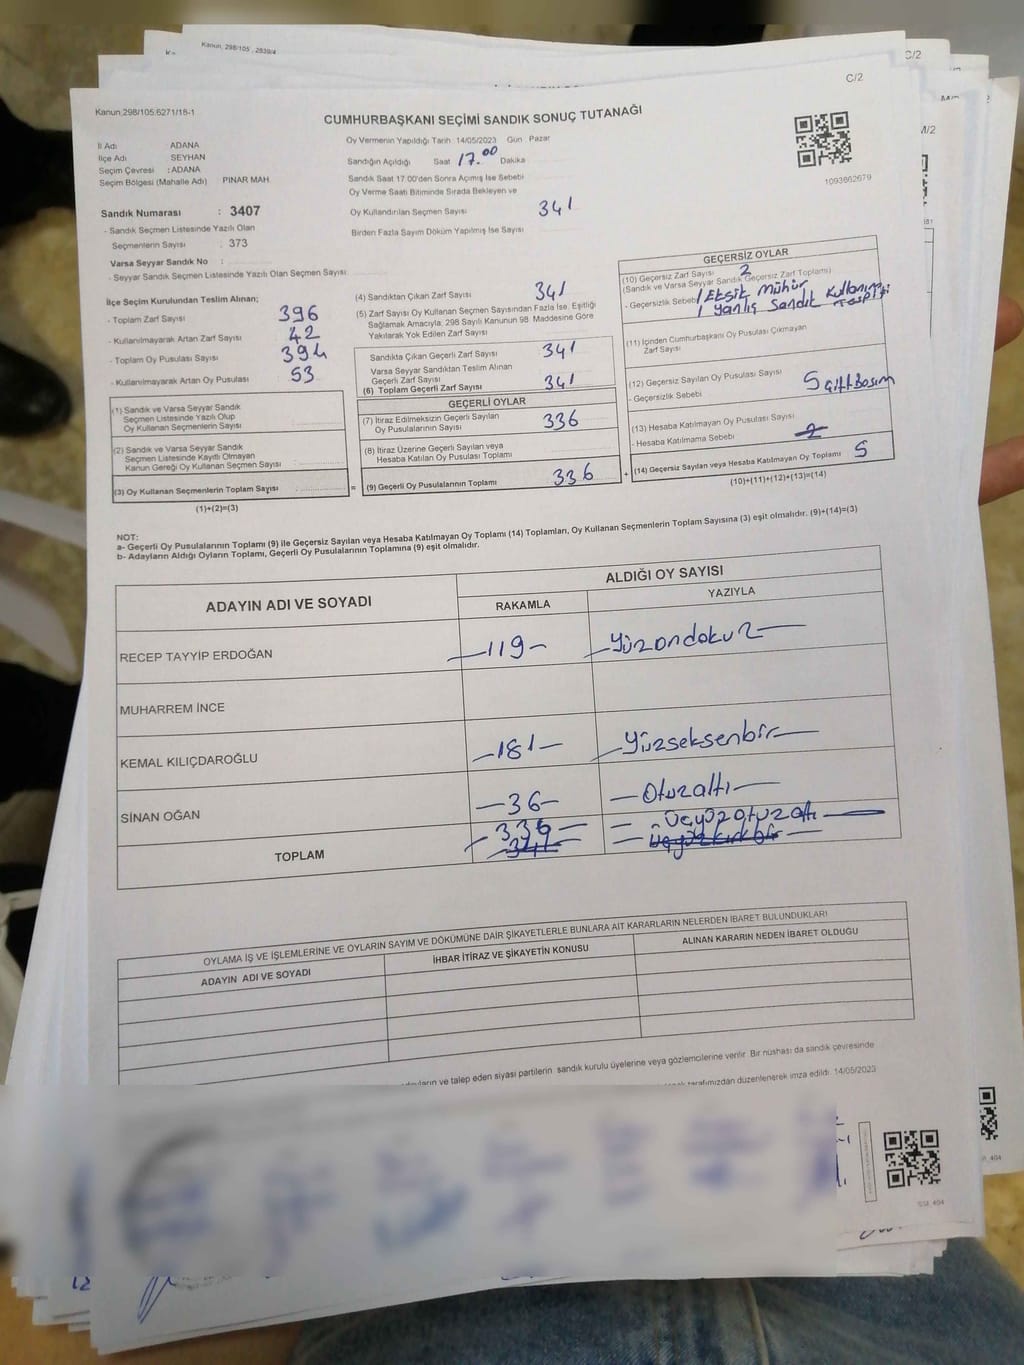 Kanun, 298/105, 2839/4
C/2
C/2
M/2
Kanun,298/105:6271/18-1
CUMHURBAŞKANI SEÇİMİ SANDIK SONUÇ TUTANAĞI
İl Adı ADANA
İlçe Adı SEYHAN
Seçim Çevresi :ADANA
Seçim Bölgesi (Mahalle Adı) PINAR MAH
Oy Vermenin Yapıldığı Tarih 14/05/2023 Gün Pazar
Sandığın Açıldığı Saat 17.00 Dakika
Sandık Saat 17:00'den Sonra Açımış İse Sebebi
Oy Verme Saati Bitiminde Sırada Bekleyen ve
Oy Kullandırılan Seçmen Sayısı 341
Birden Fazla Sayım Döküm Yapılmış İse Sayısı
1093602679
Sandık Numarası : 3407
- Sandık Seçmen Listesinde Yazılı Olan
Seçmenlerin Sayısı : 373
Varsa Seyyar Sandık No :
- Seyyar Sandık Seçmen Listesinde Yazılı Olan Seçmen Sayısı:
İlçe Seçim Kurulundan Teslim Alınan;
- Toplam Zarf Sayısı 396
- Kullanılmayarak Artan Zarf Sayısı 42
- Toplam Oy Pusulası Sayısı 394
- Kullanılmayarak Artan Oy Pusulası 53
(1) Sandık ve Varsa Seyyar Sandık
Seçmen Listesinde Yazılı Olup
Oy Kullanan Seçmenlerin Sayısı :
(2) Sandık ve Varsa Seyyar Sandık
Seçmen Listesinde Kayıtlı Olmayan
Kanun Gereği Oy Kullanan Seçmen Sayısı :
(3) Oy Kullanan Seçmenlerin Toplam Sayısı :
(1)+(2)=(3)
(4) Sandıktan Çıkan Zarf Sayısı 341
(5) Zarf Sayısı Oy Kullanan Seçmen Sayısından Fazla İse, Eşitliği
Sağlamak Amacıyla; 298 Sayılı Kanunun 98. Maddesine Göre
Yakılarak Yok Edilen Zarf Sayısı
Sandıkta Çıkan Geçerli Zarf Sayısı 341
Varsa Seyyar Sandıktan Teslim Alınan
Geçerli Zarf Sayısı
(6) Toplam Geçerli Zarf Sayısı 341
GEÇERLİ OYLAR
(7) İtiraz Edilmeksizin Geçerli Sayılan
Oy Pusulalarının Sayısı 336
(8) İtiraz Üzerine Geçerli Sayılan veya
Hesaba Katılan Oy Pusulası Toplamı
= (9) Geçerli Oy Pusulalarının Toplamı 336 +
GEÇERSİZ OYLAR
(10) Geçersiz Zarf Sayısı 2
(Sandık ve Varsa Seyyar Sandık Geçersiz Zarf Toplamı)
- Geçersizlik Sebebi 1 Eksik Mühür
1 Yanlış Sandık Kullanım Tespiti
(11) İçinden Cumhurbaşkanı Oy Pusulası Çıkmayan
Zarf Sayısı
(12) Geçersiz Sayılan Oy Pusulası Sayısı 5 çift Basım
- Geçersizlik Sebebi
(13) Hesaba Katılmayan Oy Pusulası Sayısı
- Hesaba Katılmama Sebebi 2
(14) Geçersiz Sayılan veya Hesaba Katılmayan Oy Toplamı 5
(10)+(11)+(12)+(13)=(14)
NOT:
a- Geçerli Oy Pusulalarının Toplamı (9) ile Geçersiz Sayılan veya Hesaba Katılmayan Oy Toplamı (14) Toplamları, Oy Kullanan Seçmenlerin Toplam Sayısına (3) eşit olmalıdır. (9)+(14)=(3)
b- Adayların Aldığı Oyların Toplamı, Geçerli Oy Pusulalarının Toplamına (9) eşit olmalıdır.
ADAYIN ADI VE SOYADI ALDIĞI OY SAYISI
RAKAMLA YAZIYLA
RECEP TAYYİP ERDOĞAN -119- Yüzondokuz
MUHARREM İNCE
KEMAL KILIÇDAROĞLU -181- Yüzseksenbir
SİNAN OĞAN -36- Otuzaltı
TOPLAM 336 Üçyüzotuzaltı
341 Üçyüzkırkbir
OYLAMA İŞ VE İŞLEMLERİNE VE OYLARIN SAYIM VE DÖKÜMÜNE DAİR ŞİKAYETLERLE BUNLARA AİT KARARLARIN NELERDEN İBARET BULUNDUKLARI
ADAYIN ADI VE SOYADI İHBAR İTİRAZ VE ŞİKAYETİN KONUSU ALINAN KARARIN NEDEN İBARET OLDUĞU
ve talep eden siyasi partilerin sandık kurulu üyelerine veya gözlemcilerine verilir. Bir nüshası da sandık çevresinde
tarafımızdan düzenlenerek imza edildi. 14/05/2023